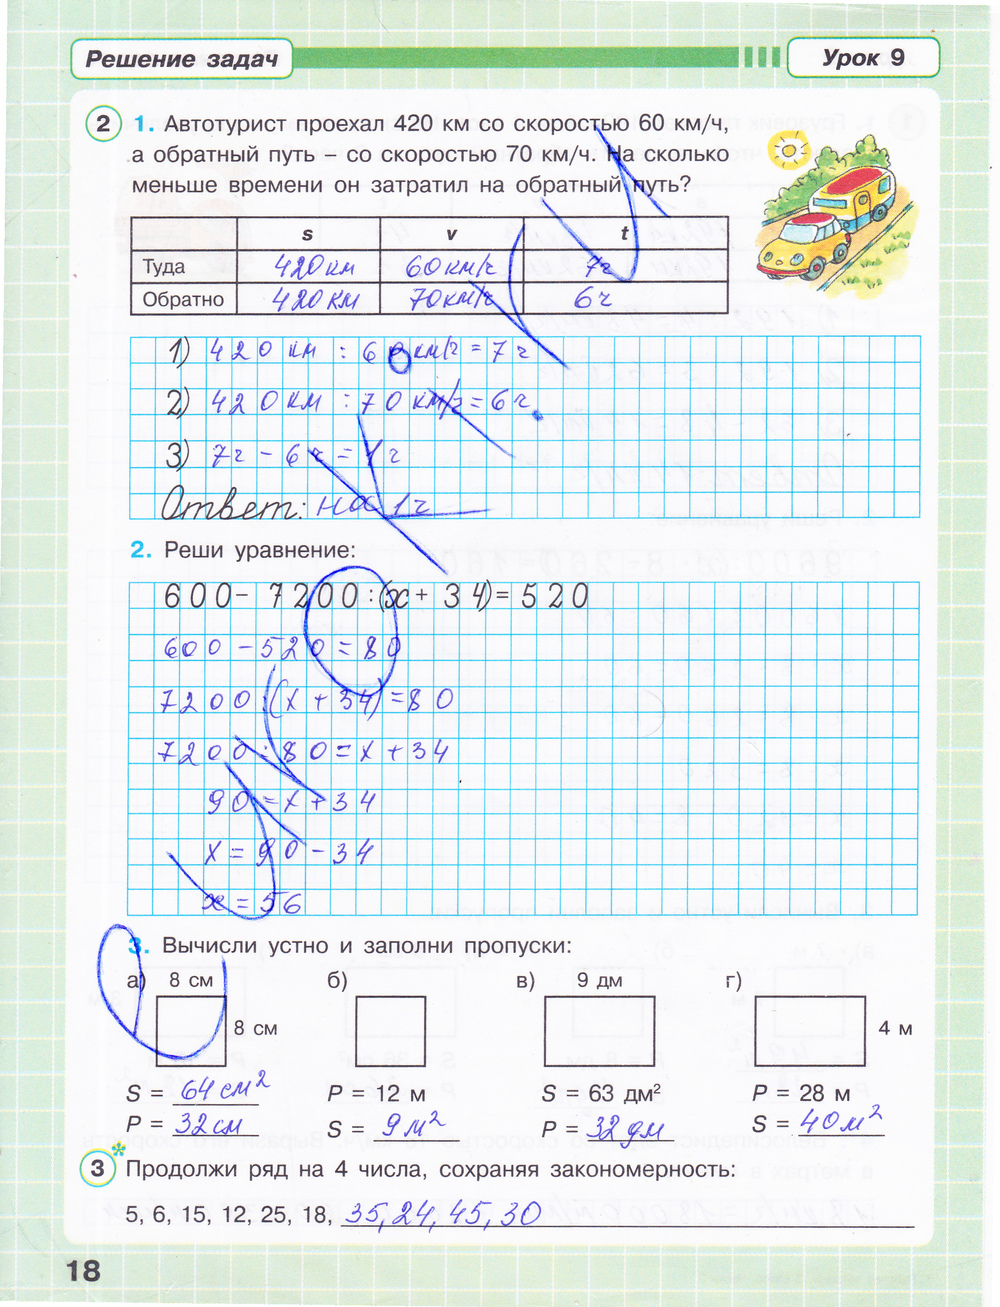 Решение задач
Урок 9
2 1. Автотурист проехал 420 км со скоростью 60 км/ч,
а обратный путь – со скоростью 70 км/ч. На сколько
меньше времени он затратил на обратный путь?
s v t
Туда 420 км 60 км/ч 7ч
Обратно 420 км 70 км/ч 6ч
1) 420 км : 60 км/ч = 7 ч
2) 420 км : 70 км/ч = 6 ч.
3) 7ч - 6ч = 1 ч
Ответ: на 1 ч
2. Реши уравнение:
600 - 7200 : (x + 34) = 520
600 - 520 = 80
7200 : (x + 34) = 80
7200 : 80 = x + 34
90 = x + 34
x = 90 - 34
x = 56
3. Вычисли устно и заполни пропуски:
а) 8 см б) в) 9 дм г)
8 см 4 м
S = 64 см² P = 12 м S = 63 дм² P = 28 м
P = 32 см S = 9 м² P = 32 дм S = 40 м²
3* Продолжи ряд на 4 числа, сохраняя закономерность:
5, 6, 15, 12, 25, 18, 35, 24, 45, 30
18